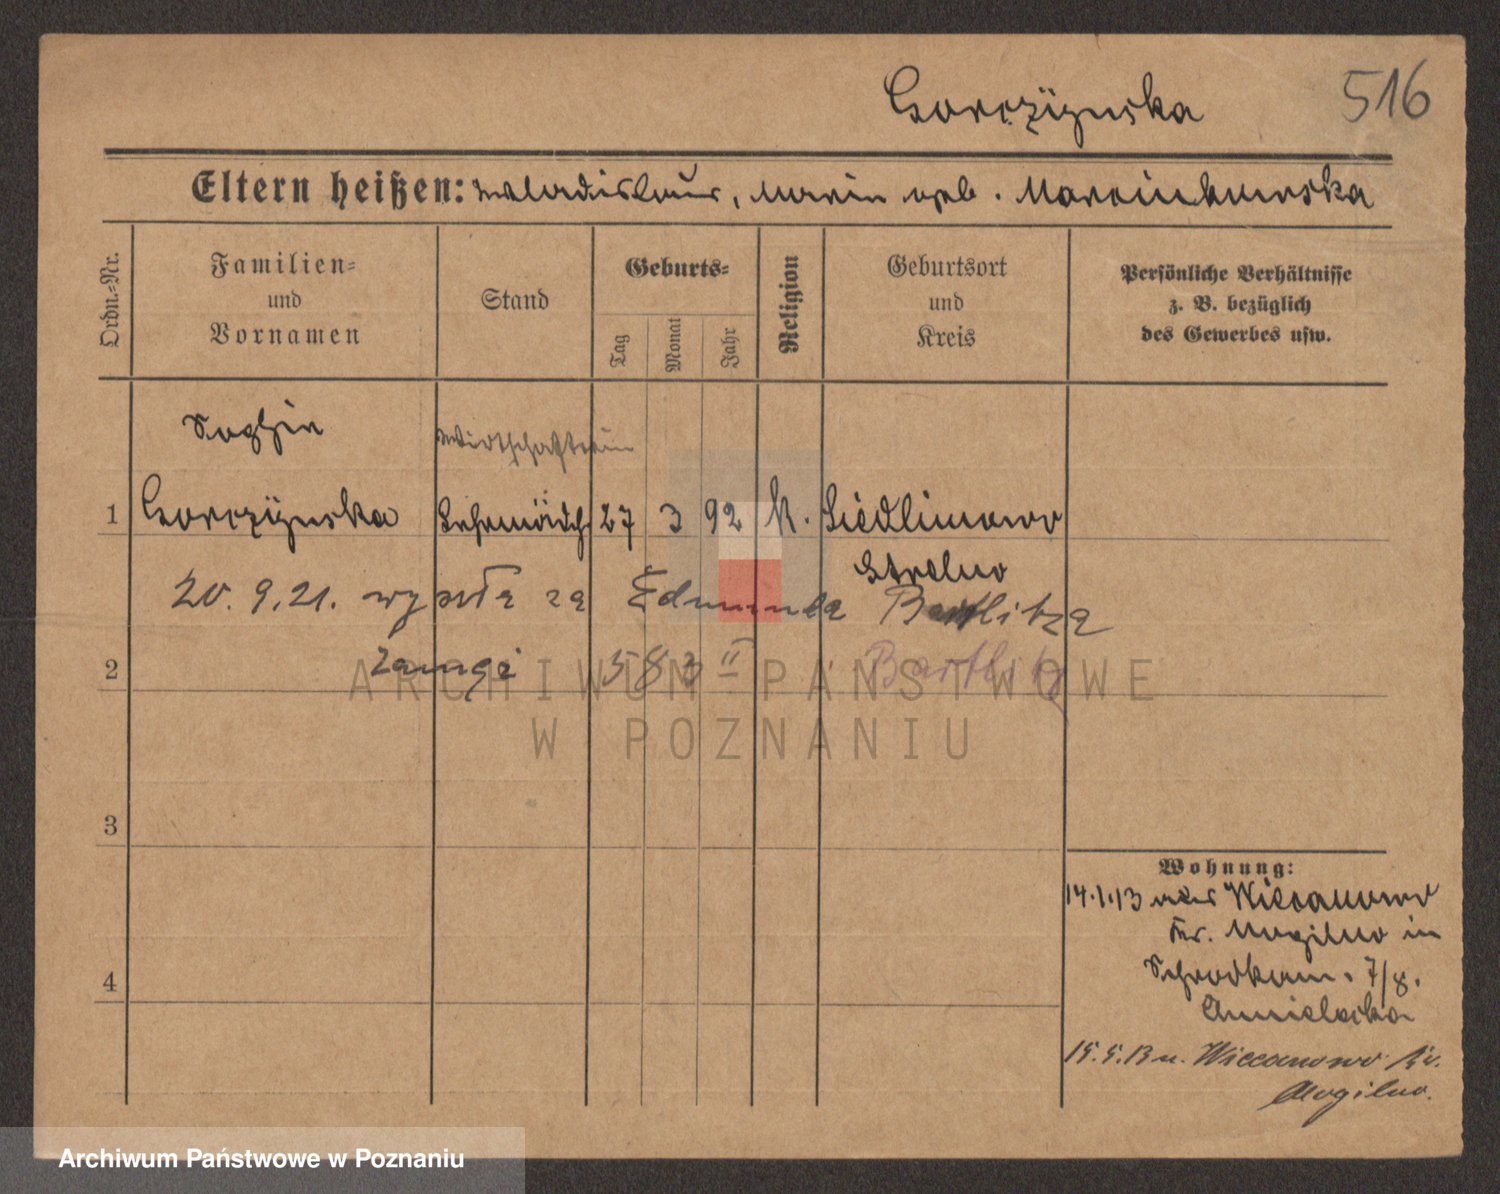 Gorczÿnska
516
Eltern heißen: Wladislaus, Marie geb. Marcinkowska
Ordn.-Nr.
Familien-
und
Vornamen
Stand
Geburts-
Tag
Monat
Jahr
Religion
Geburtsort
und
Kreis
Persönliche Verhältnisse
z. B. bezüglich
des Gewerbes usw.
Sophie
Wirtschafterin
1 Gorczÿnska Lehrmädch. 27 3 92 K. Siedlimowo
Strelno
20. 9. 21. wyszła za Edmunda Bartlitza
2 583 II Bartlitz
3
Wohnung:
14.1.13 Wiecanowo
Kr. Mogilno in
4 Schrodkam. 7/8.
15.5.13 n. Wiecanowo Kr.
Mogilno.
ARCHIWUM PAŃSTWOWE
W POZNANIU
Archiwum Państwowe w Poznaniu